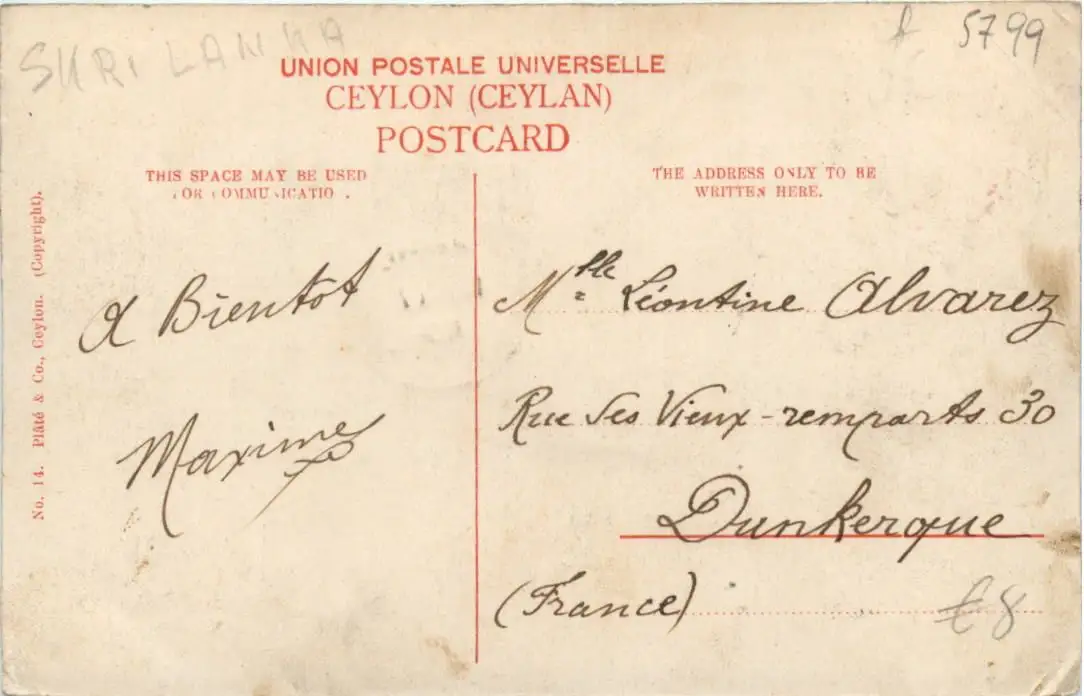 SHRI LANKA
5799
UNION POSTALE UNIVERSELLE
CEYLON (CEYLAN)
POSTCARD
THIS SPACE MAY BE USED
FOR COMMUNICATION.
THE ADDRESS ONLY TO BE
WRITTEN HERE.
No. 14. Plâté & Co., Ceylon. (Copyright).
A Bientot
Maxime
Mlle Léontine Alvarez
Rue des Vieux-remparts 30
Dunkerque
(France)
£8